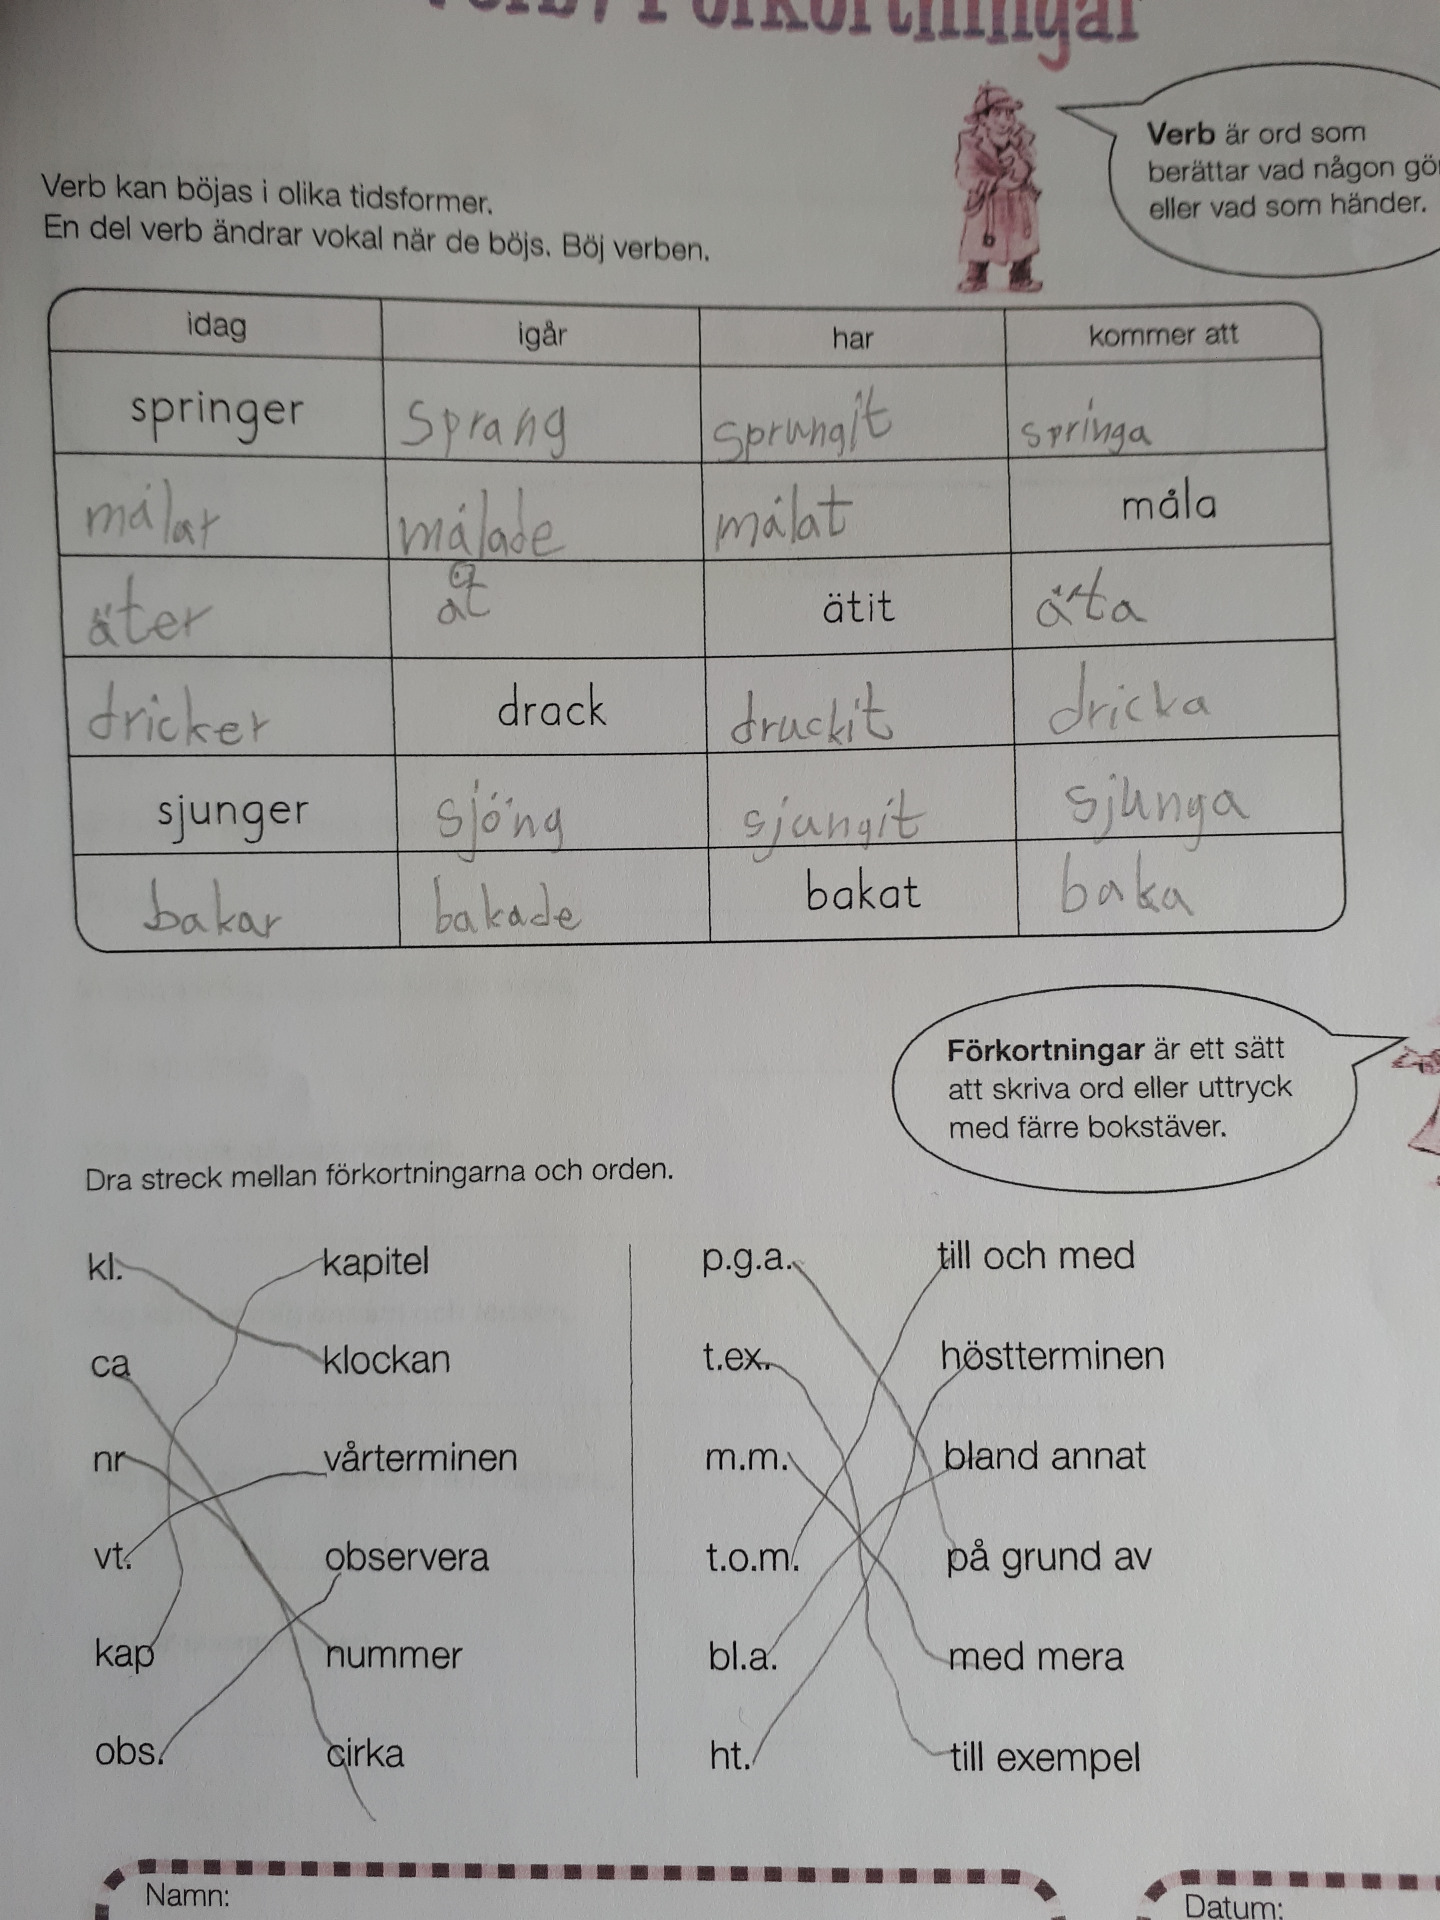 Verb / Förkortningar
Verb är ord som
berättar vad någon gör
eller vad som händer.
Verb kan böjas i olika tidsformer.
En del verb ändrar vokal när de böjs. Böj verben.
idag igår har kommer att
springer sprang sprungit springa
målar målade målat måla
äter åt ätit äta
dricker drack druckit dricka
sjunger sjöng sjungit sjunga
bakar bakade bakat baka
Förkortningar är ett sätt
att skriva ord eller uttryck
med färre bokstäver.
Dra streck mellan förkortningarna och orden.
kl. kapitel p.g.a. till och med
ca klockan t.ex. höstterminen
nr vårterminen m.m. bland annat
vt. observera t.o.m. på grund av
kap nummer bl.a. med mera
obs. cirka ht. till exempel
Namn: Datum: